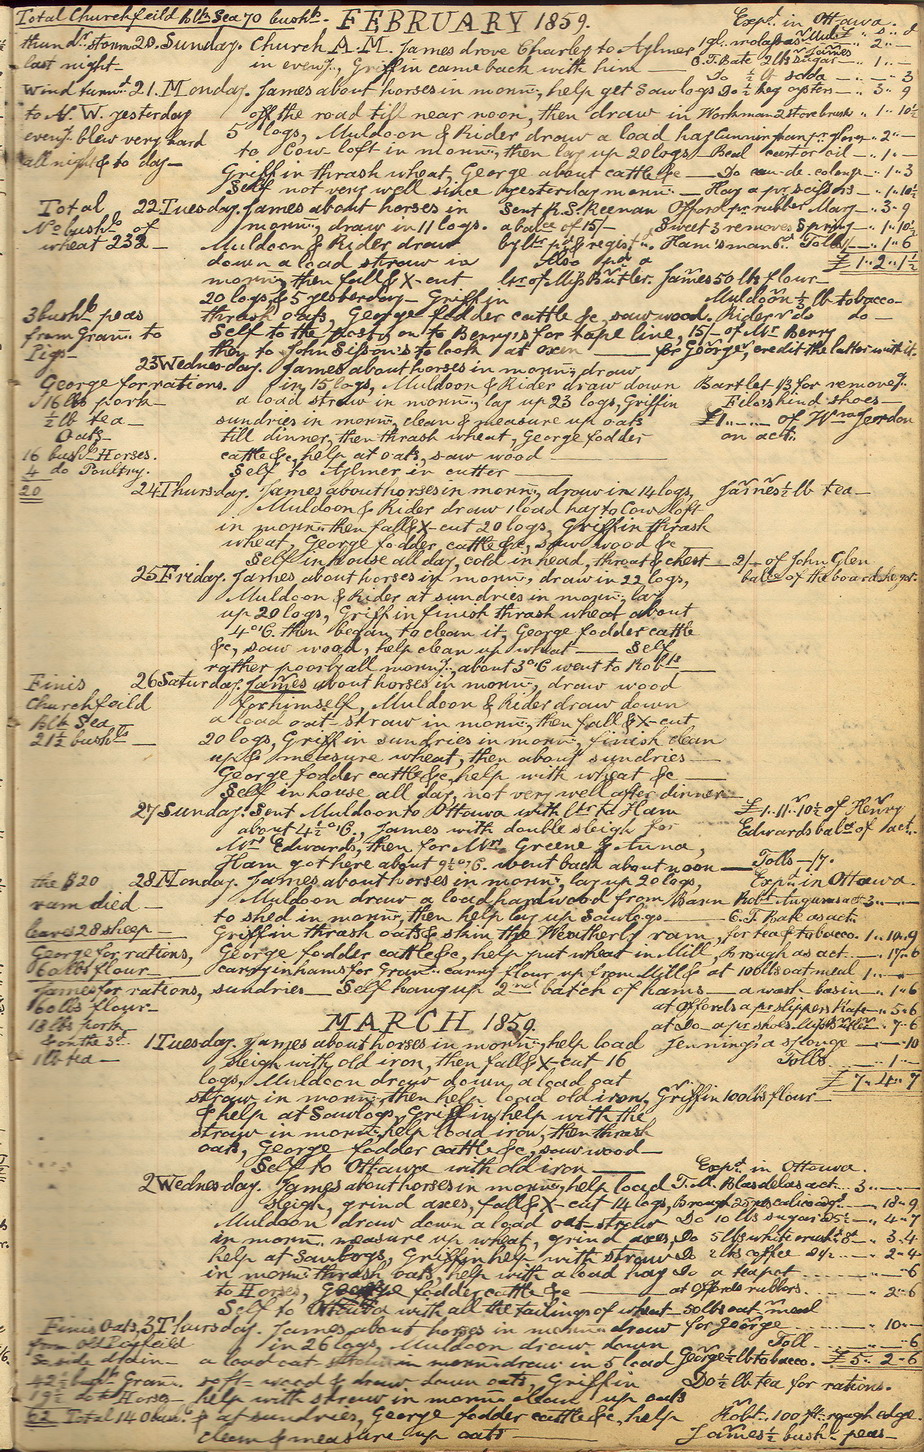 Total Churchfeild blk Sea 70 bushs. - FEBRUARY 1859. Expd. in Ottawa.
thundr. storm 20. Sunday. Church A.M. James drove Charley to Aylmer
last night - in eveng., Griffin came back with him - C.T. Bate 2 lbs sugar - 1 -
Do ½ lb soda - 3
Wind turnd. 21. Monday. James about horses in mornng, help get Sawlogs Do ½ keg oysters - 3 9
to N.W. yesterday off the road till near noon, then draw in Workman 2 stove brush 1 10½
eveng. blew very hard 5 logs, Muldoon & Rider draw a load hay Cunningham pr. gloves 2 -
all night & to day - to Cow loft in mornng, then lay up 20 logs Beal castor oil - 1 -
Griffin thrash wheat, George about cattle &c - Do eau-de-cologne - 1 3
Self not very well since yesterday mornng. - Hay a pr. scissors - 1 10½
Total 22 Tuesday. James about horses in Sent R.S. Keenan Offord pr. rubbers Mary - 3 9
No. bushs. of mornng, draw in 11 logs. a balce of 15/- Sweet 3 removes Spring - 1 10½
wheat 232 - Muldoon & Rider draw by ltr pd & registd. Ham's man 6d. Tolls - 1 6
down a load straw in Also pd a £ 1 2 1½
mornng, then fall & X-cut ltr of Mrs Butler. James 50 lbs flour -
20 logs, & 5 yesterday - Griffin Muldoon ½ lb tobacco -
3 bushs. peas thrash oats, George fodder cattle &c, saw wood. Rider do do -
from Gram. to Self to the post, on to Berry's for tape line, 15/- of Mr Berry
Pigs - then to John Sisson's to look at oxen - for George, credit the latter with it.
23 Wednesday. James about horses in mornng, draw
George for rations. in 15 logs, Muldoon & Rider draw down Bartlet 1/3 for removeg.
16 lbs pork - a load straw in mornng, lay up 23 logs, Griffin File's hind shoes -
½ lb tea - sundries in mornng, clean & measure up oats £1 of Wm Jordon
Oats - till dinner, then thrash wheat, George fodder on act.
16 bushs. Horses. cattle &c, help at oats, saw wood
4 do Poultry. Self to Aylmer in cutter
20 24 Thursday. James about horses in mornng, draw in 14 logs, James ½ lb tea -
Muldoon & Rider draw 1 load hay to Cow loft
in mornng, then fall & X-cut 20 logs, Griffin thrash
wheat, George fodder cattle &c, saw wood &c
Self in house all day, cold in head, throat & chest - 2/- of John Glen
25 Friday. James about horses in mornng, draw in 22 logs, balce of the board he got.
Muldoon & Rider at sundries in mornng, lay
up 20 logs, Griffin finish thrash wheat about
4 o'C. then began to clean it, George fodder cattle
&c, saw wood, help clean up wheat - Self
rather poorly all morng., about 3 o'C went to Robts
Finis 26 Saturday. James about horses in mornng, draw wood
Churchfeild for himself, Muldoon & Rider draw down
blk Sea a load oat straw in mornng, then fall & X-cut
21½ bushs - 20 logs, Griffin sundries in mornng, finish clean
up & measure wheat, then about sundries -
George fodder cattle &c, help with wheat &c -
Self in house all day, not very well after dinner -
27 Sunday. Sent Muldoon to Ottawa with ltr to Ham £1.11.10½ of Henry
about 4½ o'C., James with double sleigh for Edwards balce of act.
Mrs Edwards, then for Mrs Greene & Anna,
Ham got here about 9½ o'C. went back about noon - Tolls - /7.
the $20 28 Monday. James about horses in mornng, lay up 20 logs, Expd. in Ottawa.
ram died - Muldoon draw a load hardwood from Barn Robt. Angus as act 3
to shed in mornng, then help lay up Sawlogs - C.T. Bate as act
leaves 28 sheep - Griffin thrash oats & skin the Weatherly ram, for tea & tobacco. 1 10 9
George for rations, George fodder cattle &c, help put wheat in Mill, Brough as act - 17 6
60 lbs flour carry in hams for Gram. carry flour up from Mill & at 100 lbs oat meal 1
James for rations, sundries - Self hang up 2nd batch of hams - a wash basin - 1 6
60 lbs flour - at Offords a pr. slippers Kate - 5 6
18 lbs pork MARCH 1859. at Do a pr shoes - 7 6
& on the 3d. 1 Tuesday. James about horses in mornng, help load Jenning's a sponge - 10
1 lb tea - sleigh with old iron, then fall & X-cut 16 Tolls - 1 -
logs, Muldoon draw down a load oat £ 7 4 7
straw in mornng, then help load old iron, Griffin 100 lbs flour
& help at Sawlogs, Griffin help with the
straw in mornng, help load iron, then thrash
oats, George fodder cattle &c, saw wood -
Self to Ottawa with old iron - Expd. in Ottawa.
2 Wednesday. James about horses in mornng, help load T.M. Blasdel as act. 3
sleigh, grind axes, fall & X-cut 14 logs, Brough 25 yds calico - 18 9
Muldoon draw down a load oat straw Do 10 lbs sugar - 4 7
in mornng, measure up wheat, grind axes, Do 5 lbs white crushd. 8d - 3 4
help at Sawlogs, Griffin help with straw Do 2 lbs coffee - 2 4
in mornng, thrash oats, help with a load hay Do a teapot - 6
to Horses, George fodder cattle &c - at Offords rubbers - 2 6
Self to Ottawa with all the tailings of wheat - 50 lbs oat meal
Finis Oats, 3 Thursday. James about horses in mornng, draw for George - 10
from Old in 26 logs, Muldoon draw down Toll - 6
Se. side drain - a load oat straw in mornng, draw in 5 load George ½ lb tobacco. £ 5 2 6
42½ bushs Gram. soft-wood & draw down oats, Griffin Do ½ lb tea for rations.
19½ do Horses - help with straw in mornng, clean up oats
62 Total 140 bushs & at sundries, George fodder cattle &c, help Robt. 100 ft. rough edge
clean & measure up oats - James ½ bush. peas -